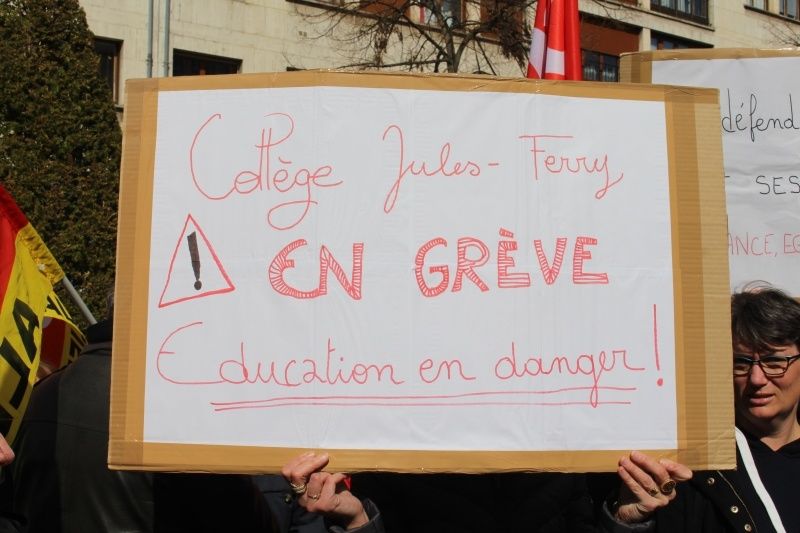 Collège Jules-Ferry
! EN GRÈVE
Education en danger !
défend
SES
ANCE, EG